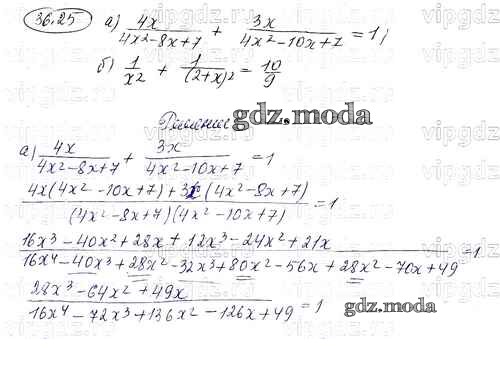 36.25 а) 4x/(4x²-8x+7) + 3x/(4x²-10x+7) = 1;
б) 1/x² + 1/(2+x)² = 10/9
Решение
gdz.moda
а) 4x/(4x²-8x+7) + 3x/(4x²-10x+7) = 1
(4x(4x²-10x+7)+3x(4x²-8x+7))/((4x²-8x+7)(4x²-10x+7)) = 1
(16x³-40x²+28x+12x³-24x²+21x)/(16x⁴-40x³+28x²-32x³+80x²-56x+28x²-70x+49) = 1
(28x³-64x²+49x)/(16x⁴-72x³+136x²-126x+49) = 1
gdz.moda